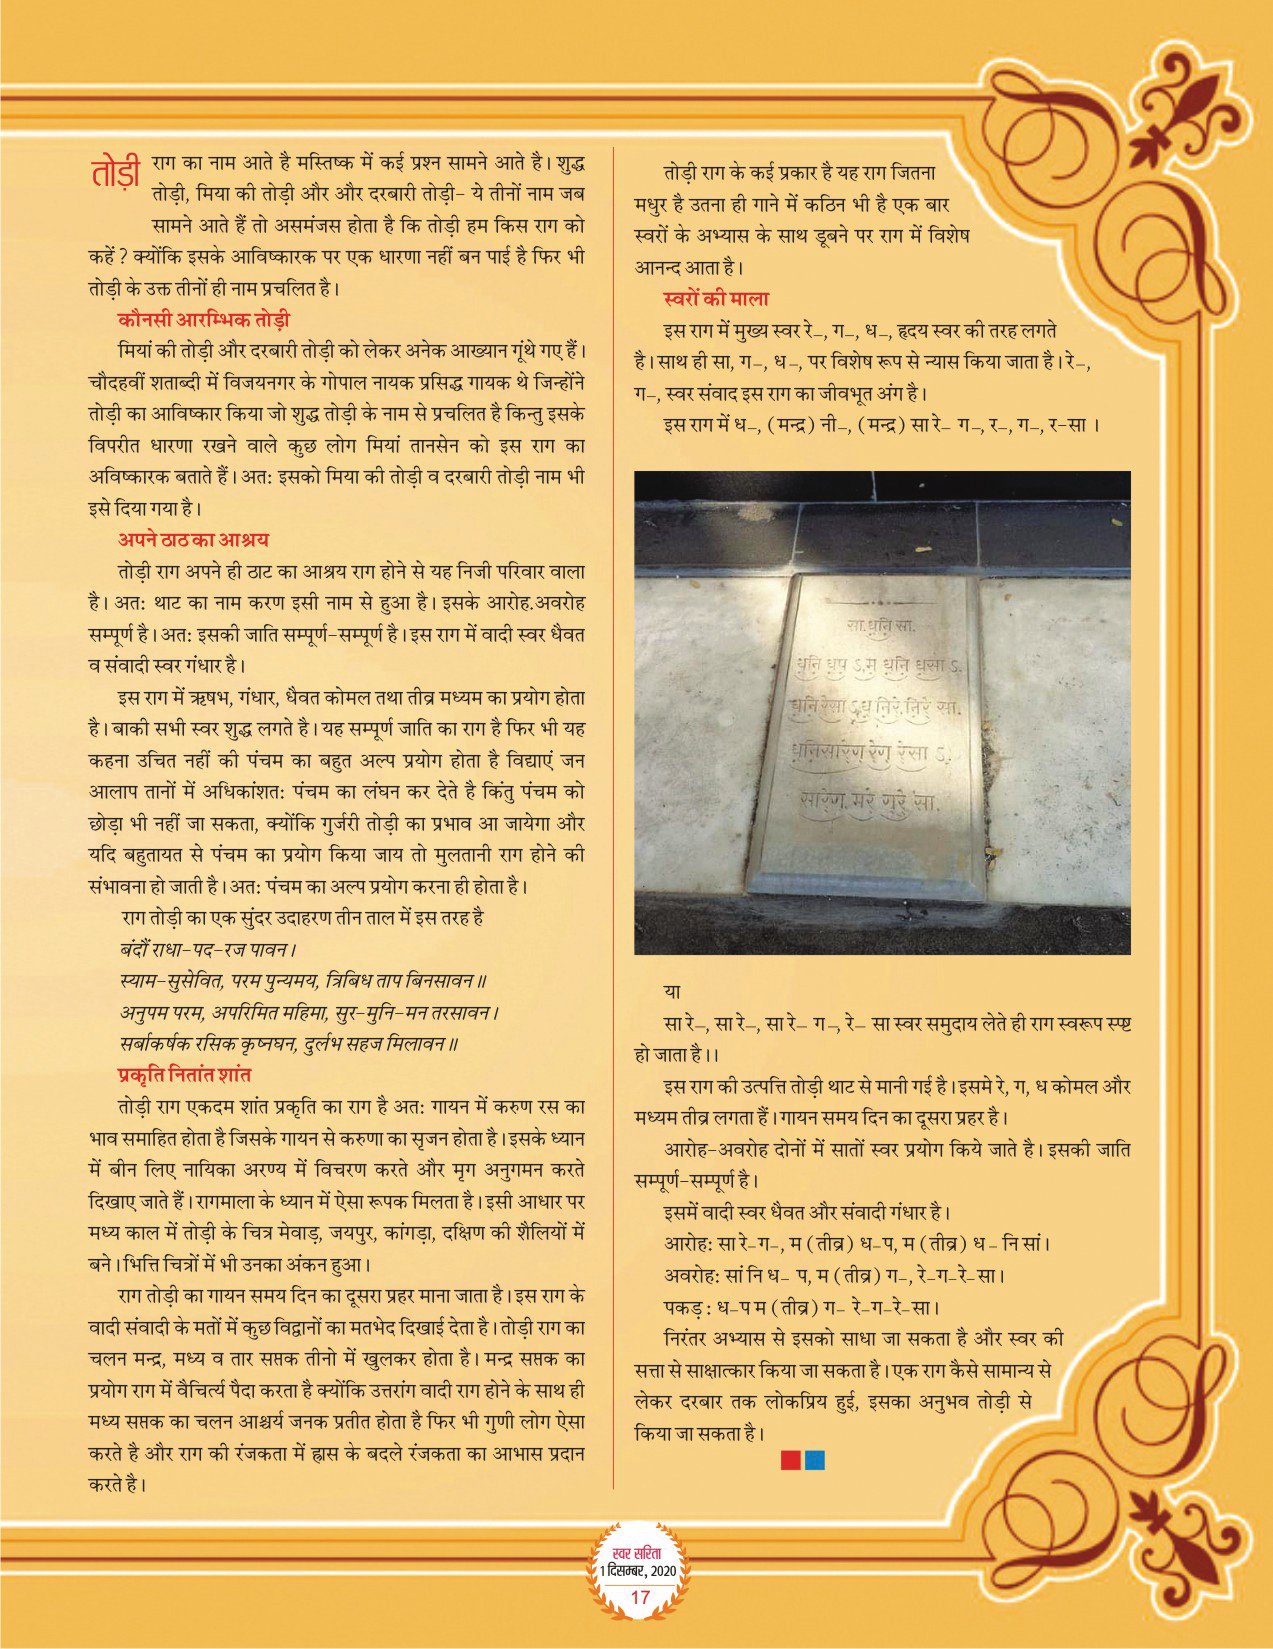 तोड़ी राग का नाम आते है मस्तिष्क में कई प्रश्न सामने आते है। शुद्ध
तोड़ी, मिया की तोड़ी और और दरबारी तोड़ी- ये तीनों नाम जब
सामने आते हैं तो असमंजस होता है कि तोड़ी हम किस राग को
कहें ? क्योंकि इसके आविष्कारक पर एक धारणा नहीं बन पाई है फिर भी
तोड़ी के उक्त तीनों ही नाम प्रचलित है।
कौनसी आरम्भिक तोड़ी
मियां की तोड़ी और दरबारी तोड़ी को लेकर अनेक आख्यान गूंथे गए हैं।
चौदहवीं शताब्दी में विजयनगर के गोपाल नायक प्रसिद्ध गायक थे जिन्होंने
तोड़ी का आविष्कार किया जो शुद्ध तोड़ी के नाम से प्रचलित है किन्तु इसके
विपरीत धारणा रखने वाले कुछ लोग मियां तानसेन को इस राग का
अविष्कारक बताते हैं। अत: इसको मिया की तोड़ी व दरबारी तोड़ी नाम भी
इसे दिया गया है।
अपने ठाठ का आश्रय
तोड़ी राग अपने ही ठाट का आश्रय राग होने से यह निजी परिवार वाला
है। अत: थाट का नाम करण इसी नाम से हुआ है। इसके आरोह.अवरोह
सम्पूर्ण है। अत: इसकी जाति सम्पूर्ण-सम्पूर्ण है। इस राग में वादी स्वर धैवत
व संवादी स्वर गंधार है।
इस राग में ऋषभ, गंधार, धैवत कोमल तथा तीव्र मध्यम का प्रयोग होता
है। बाकी सभी स्वर शुद्ध लगते है। यह सम्पूर्ण जाति का राग है फिर भी यह
कहना उचित नहीं की पंचम का बहुत अल्प प्रयोग होता है विद्याएं जन
आलाप तानों में अधिकांशत: पंचम का लंघन कर देते है किंतु पंचम को
छोड़ा भी नहीं जा सकता, क्योंकि गुर्जरी तोड़ी का प्रभाव आ जायेगा और
यदि बहुतायत से पंचम का प्रयोग किया जाय तो मुलतानी राग होने की
संभावना हो जाती है। अत: पंचम का अल्प प्रयोग करना ही होता है।
राग तोड़ी का एक सुंदर उदाहरण तीन ताल में इस तरह है
बंदौं राधा-पद-रज पावन।
स्याम-सुसेवित, परम पुन्यमय, त्रिबिध ताप बिनसावन॥
अनुपम परम, अपरिमित महिमा, सुर-मुनि-मन तरसावन।
सर्बाकर्षक रसिक कृष्नघन, दुर्लभ सहज मिलावन॥
प्रकृति नितांत शांत
तोड़ी राग एकदम शांत प्रकृति का राग है अत: गायन में करुण रस का
भाव समाहित होता है जिसके गायन से करुणा का सृजन होता है। इसके ध्यान
में बीन लिए नायिका अरण्य में विचरण करते और मृग अनुगमन करते
दिखाए जाते हैं। रागमाला के ध्यान में ऐसा रूपक मिलता है। इसी आधार पर
मध्य काल में तोड़ी के चित्र मेवाड़, जयपुर, कांगड़ा, दक्षिण की शैलियों में
बने। भित्ति चित्रों में भी उनका अंकन हुआ।
राग तोड़ी का गायन समय दिन का दूसरा प्रहर माना जाता है। इस राग के
वादी संवादी के मतों में कुछ विद्वानों का मतभेद दिखाई देता है। तोड़ी राग का
चलन मन्द्र, मध्य व तार सप्तक तीनो में खुलकर होता है। मन्द्र सप्तक का
प्रयोग राग में वैचित्र्य पैदा करता है क्योंकि उत्तरांग वादी राग होने के साथ ही
मध्य सप्तक का चलन आश्चर्य जनक प्रतीत होता है फिर भी गुणी लोग ऐसा
करते है और राग की रंजकता में ह्रास के बदले रंजकता का आभास प्रदान
करते है।
तोड़ी राग के कई प्रकार है यह राग जितना
मधुर है उतना ही गाने में कठिन भी है एक बार
स्वरों के अभ्यास के साथ डूबने पर राग में विशेष
आनन्द आता है।
स्वरों की माला
इस राग में मुख्य स्वर रे–, ग–, ध–, हृदय स्वर की तरह लगते
है। साथ ही सा, ग–, ध–, पर विशेष रूप से न्यास किया जाता है। रे–,
ग–, स्वर संवाद इस राग का जीवभूत अंग है।
इस राग में ध–, (मन्द्र) नी–, (मन्द्र) सा रे– ग–, र–, ग–, र-सा ।
सा.धनि सा.
धनि धप ऽ.म धनि धसा ऽ.
धनि रेसा ऽध निरे.निरे सा.
धनिसारेग रेग रेसा ऽ.
सारेग. मरे गरे सा.
या
सा रे–, सा रे–, सा रे– ग–, रे– सा स्वर समुदाय लेते ही राग स्वरूप स्पष्ट
हो जाता है।।
इस राग की उत्पत्ति तोड़ी थाट से मानी गई है। इसमे रे, ग, ध कोमल और
मध्यम तीव्र लगता हैं। गायन समय दिन का दूसरा प्रहर है।
आरोह-अवरोह दोनों में सातों स्वर प्रयोग किये जाते है। इसकी जाति
सम्पूर्ण-सम्पूर्ण है।
इसमें वादी स्वर धैवत और संवादी गंधार है।
आरोह: सा रे-ग-, म (तीव्र) ध-प, म (तीव्र) ध – नि सां।
अवरोह: सां नि ध– प, म (तीव्र) ग–, रे-ग-रे-सा।
पकड़ : ध-प म (तीव्र) ग– रे-ग-रे-सा।
निरंतर अभ्यास से इसको साधा जा सकता है और स्वर की
सत्ता से साक्षात्कार किया जा सकता है। एक राग कैसे सामान्य से
लेकर दरबार तक लोकप्रिय हुई, इसका अनुभव तोड़ी से
किया जा सकता है।
स्वर सरिता
1 दिसम्बर, 2020
17